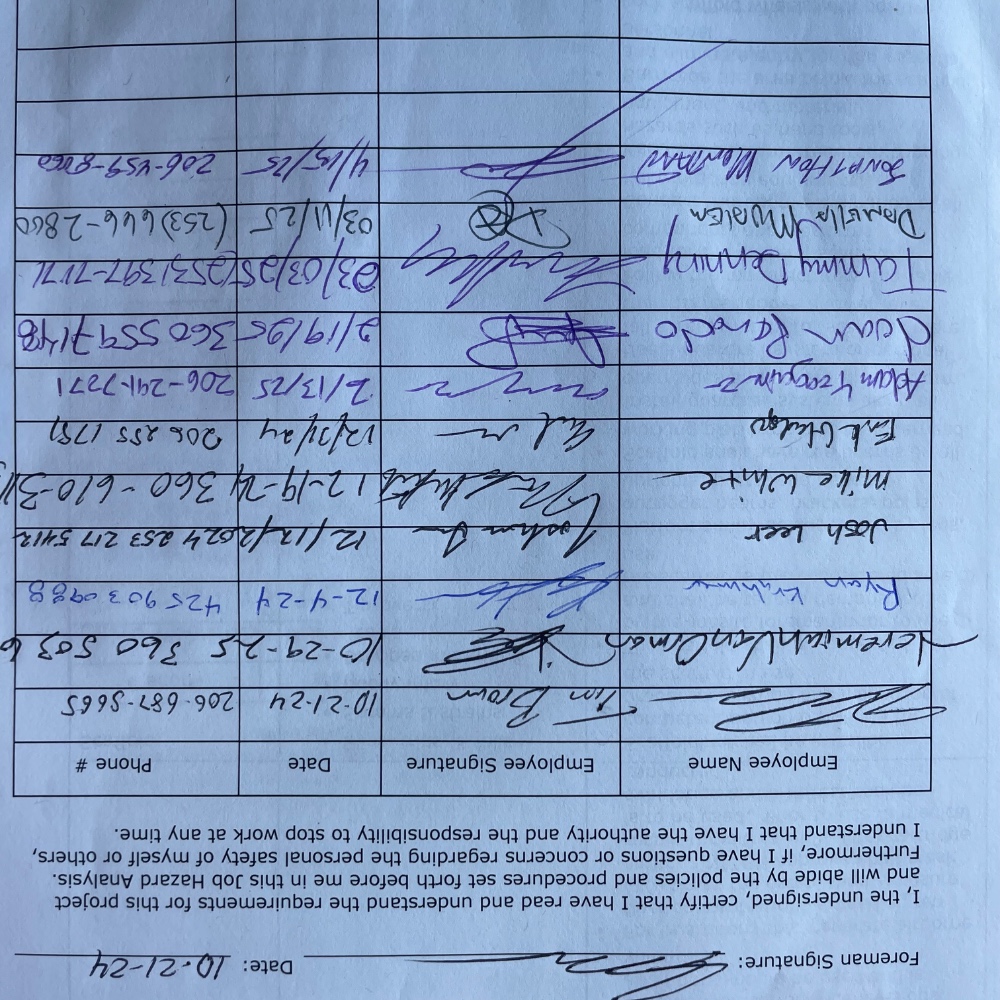 Foreman Signature: Date: 10-21-24
I, the undersigned, certify that I have read and understand the requirements for this project
and will abide by the policies and procedures set forth before me in this Job Hazard Analysis.
Furthermore, if I have questions or concerns regarding the personal safety of myself or others,
I understand that I have the authority and the responsibility to stop work at any time.
Employee Name Employee Signature Date Phone #
Tim Brown 10-21-24 206-687-5665
Jeremiah VanOman 10-29-25 360 503 6
Ryan 12-4-24 425 903 0988
Josh Leer 12/12/2024 253 217 5412
Mike White 12-19-24 360-610-311
12/31/24 206 255 1751
Adam 2/13/25 206-241-7271
2/19/25 360 559 7148
Tammy Denning 03/03/25 (253) 397-7171
Daniella 03/11/25 (253) 646-2860
4/15/25 206-459-8060